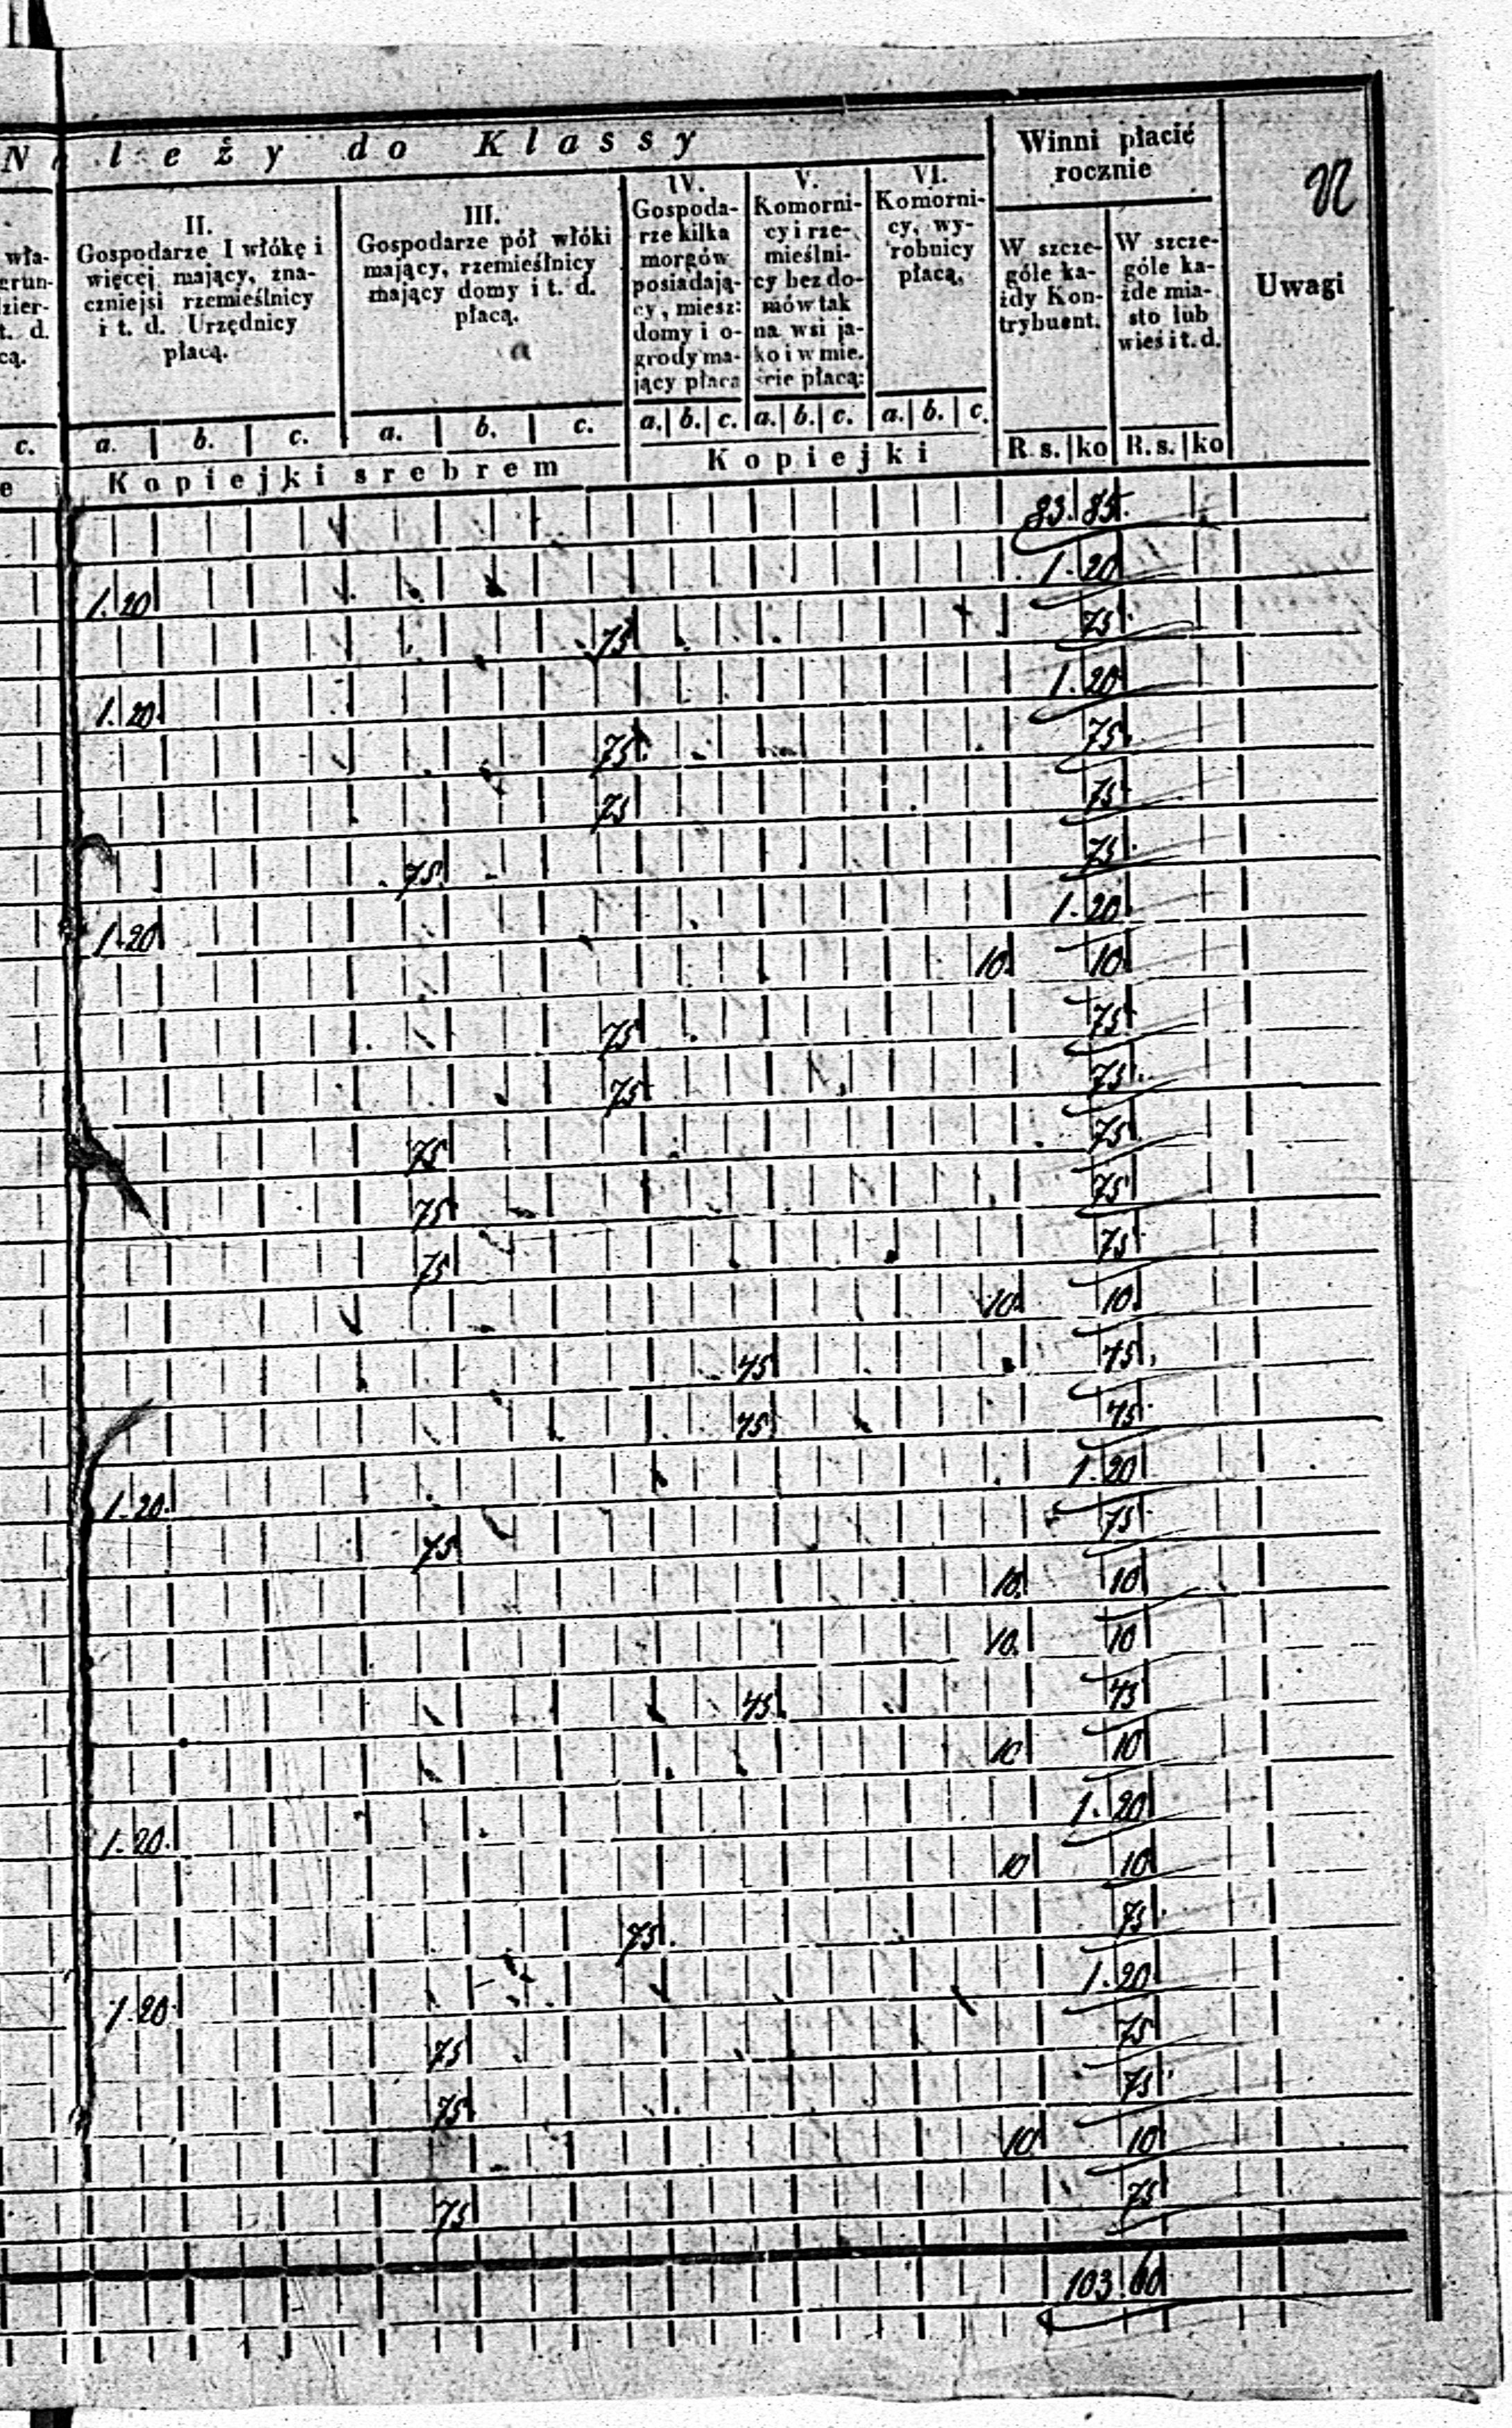 N leży do Klassy
Winni płacić
rocznie
wła-
grun-
dzier-
t. d.
cą.
II.
Gospodarze I włókę i
więcej mający, zna-
czniejsi rzemieślnicy
i t. d. Urzędnicy
płacą.
III.
Gospodarze pół włóki
mający, rzemieślnicy
mający domy i t. d.
płacą.
IV.
Gospoda-
rze kilka
morgów
posiadają-
cy, miesz:
domy i o-
grody ma-
jący płaca
V.
Komorni-
cy i rze-
mieślni-
cy bez do-
mów tak
na wsi ja-
ko i w mie.
ście płacą:
VI.
Komorni-
cy, wy-
robnicy
płacą,
W szcze-
góle ka-
żdy Kon-
trybuent.
W szcze-
góle ka-
żde mia-
sto lub
wieś i t. d.
Uwagi
c. a. b. c. a. b. c. a. b. c. a. b. c. a. b. c. R. s. ko R. s. ko
e Kopiejki srebrem Kopiejki
83. 85.
1. 20 1. 20
75 75
1. 20 1. 20
75 75
75 75
75 75
1. 20 1. 20
10 10
75 75
75 75
75 75
75 75
75 75
10 10
45 45
45 45
1. 20 1. 20
75 75
10 10
10 10
45 45
10 10
1. 20 1. 20
10 10
75 75
1. 20 1. 20
75 75
75 75
10 10
75 75
103. 60